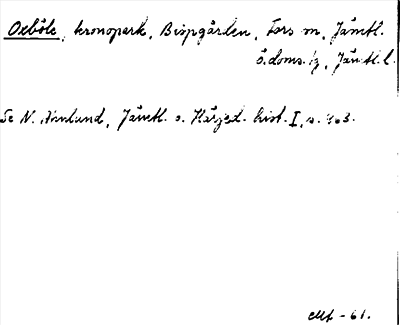 Oxböle, kronopark, Bispgården, Fors sn, Jämtl.
ö. doms.-, Jämtl. l.
Se N. Ahnlund, Jämtl. o. Härjed. hist. I, s. 403.
-61.